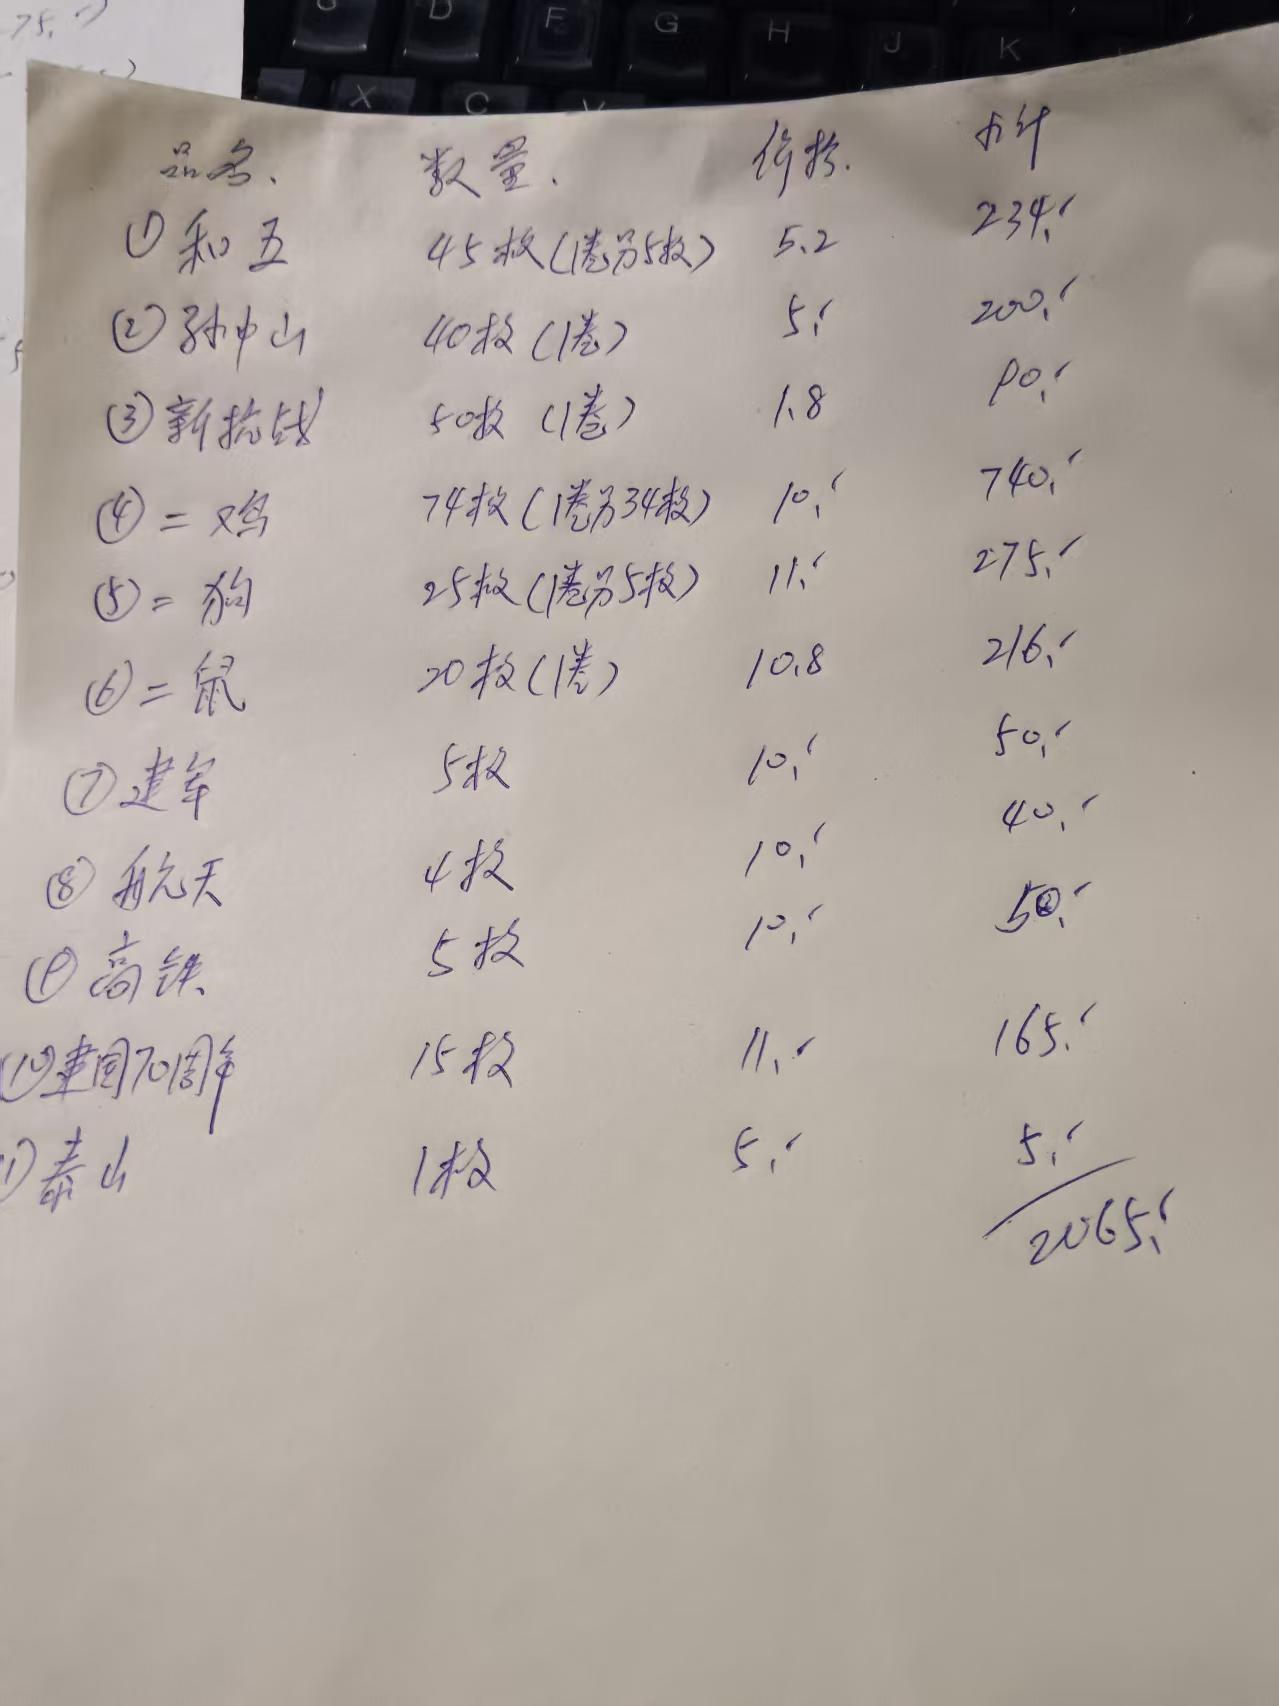 75.
G D F G H J K
X C V
品名、 数量. 价格. 小计
① 和五 45枚(1卷另5枚) 5.2 234.-
② 孙中山 40枚(1卷) 5.- 200.-
③ 新抗战 50枚(1卷) 1.8 90.-
④ 二鸡 74枚(1卷另34枚) 10.- 740.-
⑤ 二狗 25枚(1卷另5枚) 11.- 275.-
⑥ 二鼠 20枚(1卷) 10.8 216.-
⑦ 建军 5枚 10.- 50.-
⑧ 航天 4枚 10.- 40.-
⑨ 高铁 5枚 10.- 50.-
⑩ 建国70周年 15枚 11.- 165.-
⑪ 泰山 1枚 5.- 5.-
2065.-